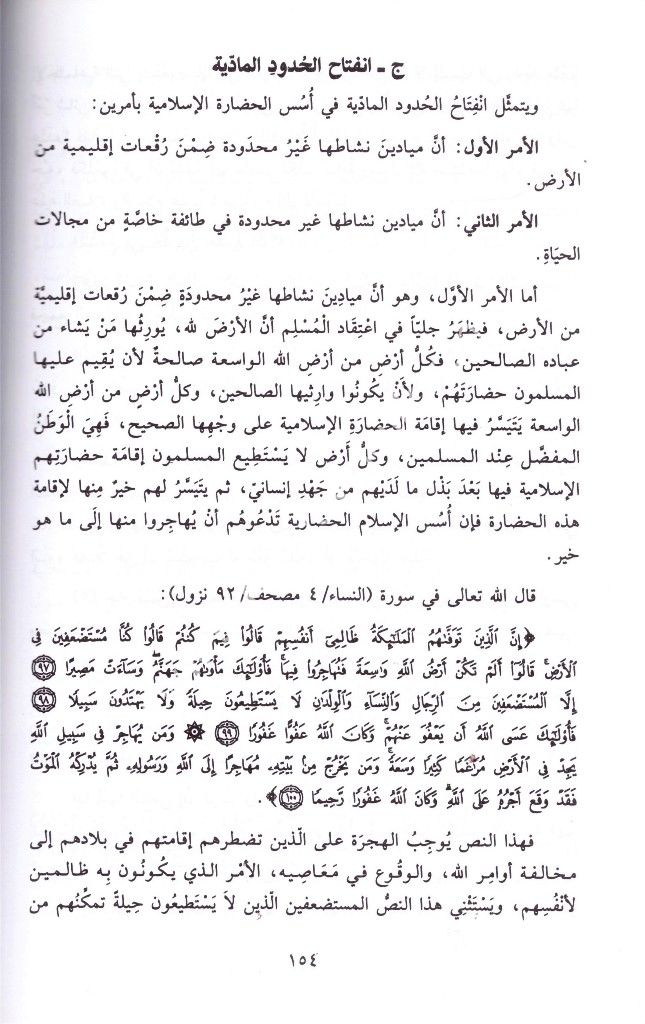 ج ـ انفتاح الحُدودِ المادّية
ويتمثَّل انْفِتَاحُ الحُدود المادّية في أُسُس الحضارة الإسلامية بأمرين:
الأمر الأول: أنَّ ميادينَ نشاطها غَيْرُ محدَودة ضِمْنَ رُقْعات إقليمية من
الأرض.
الأمر الثاني: أنَّ ميادين نشاطها غير محدودة في طائفة خاصَّةٍ من مجالات
الحيَاةِ.
أما الأمر الأوَّل، وهو أنَّ ميادِينَ نشاطها غيْرُ محدودَةٍ ضِمْنَ رُقعات إقليميَّة
من الأرض، فيظهَرُ جليّاً في اعْتِقَاد الْمُسْلِم أنَّ الأرْضَ لله، يُورِثُها مَنْ يَشاء من
عباده الصالحين، فكُلُّ أرْضٍ من أرْضِ الله الواسعة صالحةٌ لأن يُقِيم عليها
المسلمون حضارَتَهُمْ، ولأَنْ يكُونُوا وارِثيها الصالحين، وكلُّ أرْضٍ من أرْضِ الله
الواسعة يَتَيَسَّرُ فيها إقَامَة الحضارَةِ الإسلامية على وجْهِها الصحيح، فَهِيَ الْوَطَنُ
المفضَّل عِنْد المسلمين، وكلُّ أَرْض لا يَسْتَطِيع المسلمون إقامَة حضارَتِهم
الإسلامية فيها بَعْدَ بَذْل ما لَدَيْهم من جَهْدٍ إنسانيّ، ثم يتَيَسَّرُ لهم خيرٌ مِنها لإقامة
هذه الحضارة فإن أُسُس الإسلام الحضارية تَدْعُوهُم أنْ يُهاجِروا منها إلَى ما هو
خير.
قال الله تعالى في سورة (النساء/ ٤ مصحف/ ٩٢ نزول):
﴿إِنَّ الَّذِينَ تَوَفَّاهُمُ الْمَلَائِكَةُ ظَالِمِي أَنفُسِهِمْ قَالُوا فِيمَ كُنتُمْ قَالُوا كُنَّا مُسْتَضْعَفِينَ فِي
الْأَرْضِ قَالُوا أَلَمْ تَكُنْ أَرْضُ اللَّهِ وَاسِعَةً فَتُهَاجِرُوا فِيهَا فَأُولَٰئِكَ مَأْوَاهُمْ جَهَنَّمُ وَسَاءَتْ مَصِيرًا ٩٧
إِلَّا الْمُسْتَضْعَفِينَ مِنَ الرِّجَالِ وَالنِّسَاءِ وَالْوِلْدَانِ لَا يَسْتَطِيعُونَ حِيلَةً وَلَا يَهْتَدُونَ سَبِيلًا ٩٨
فَأُولَٰئِكَ عَسَى اللَّهُ أَن يَعْفُوَ عَنْهُمْ وَكَانَ اللَّهُ عَفُوًّا غَفُورًا ٩٩ ۞ وَمَن يُهَاجِرْ فِي سَبِيلِ اللَّهِ
يَجِدْ فِي الْأَرْضِ مُرَاغَمًا كَثِيرًا وَسَعَةً وَمَن يَخْرُجْ مِن بَيْتِهِ مُهَاجِرًا إِلَى اللَّهِ وَرَسُولِهِ ثُمَّ يُدْرِكْهُ الْمَوْتُ
فَقَدْ وَقَعَ أَجْرُهُ عَلَى اللَّهِ وَكَانَ اللَّهُ غَفُورًا رَّحِيمًا ١٠٠﴾.
فهذا النص يُوجِبُ الهجرَة على الّذين تضطرهم إقامتهم في بلادهم إلى
مخالفة أوامِر الله، والوقُوع في مَعَاصِيه، الأمْر الذي يكُونُون به ظالمين
لأنْفُسِهم، ويَسْتَثْنِي هذا النصُّ المستضعفين الّذين لاَ يَسْتَطيعُون حِيلةً تمكِّنُهم من
١٥٤